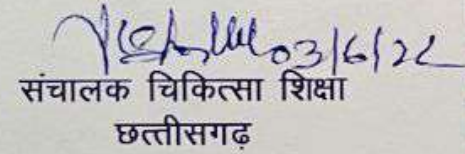 03/6/22
संचालक चिकित्सा शिक्षा
छत्तीसगढ़